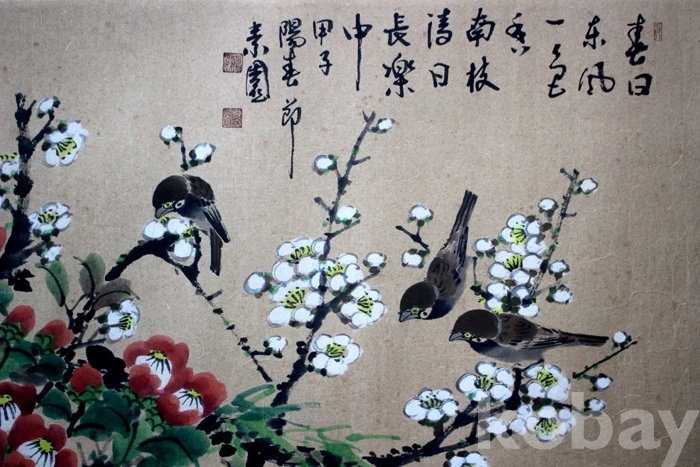 春日
东风
一色
香
南枝
清日
長樂
中
甲子
陽春節
素園
kobay